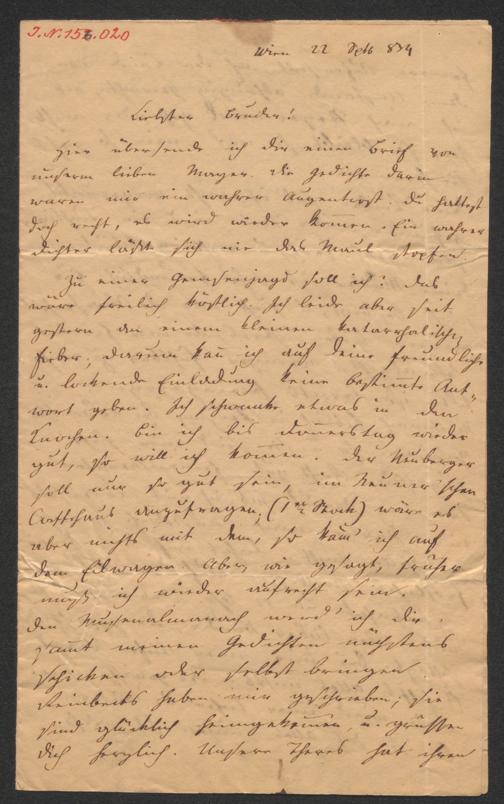 J.N. 156.020
Wien 22 Sept 834
Liebster Bruder!
Hier übersende ich dir einen Brief von
unserm lieben Mayer. die Gedichte darin
waren mir ein wahrer Augentrost. du hattest
doch recht, es wird wieder komen. Ein wahrer
dichter läßt sich nie das Maul stopfen
Zu einer Gemsenjagd soll ich? das
wäre freilich köstlich. Ich leide aber seit
gestern an einem kleinen katarrhalischen
Fieber; darum kan ich auf deine freundliche
u. lockende Einladung keine bestimte Ant-
wort geben. Ich schwanke etwas in den
Knochen. bin ich bis Donnerstag wieder
gut, so will ich komen. der Neuberger
soll nur so gut sein, im Neuner'schen
Caffehaus anzufragen, (1ter Stock) wäre es
aber nichts mit dem, so käm' ich auf
dem Eilwagen. Aber, wie gesagt, früher
muß ich wieder aufrecht sein.
den Musenalmanach werd' ich dir
sammt meinen Gedichten nächstens
schicken oder selbst bringen
Reinbecks haben mir geschrieben; sie
sind glücklich heimgekomen, u. grüssen
dich herzlich. Unsere Theres hat ihren